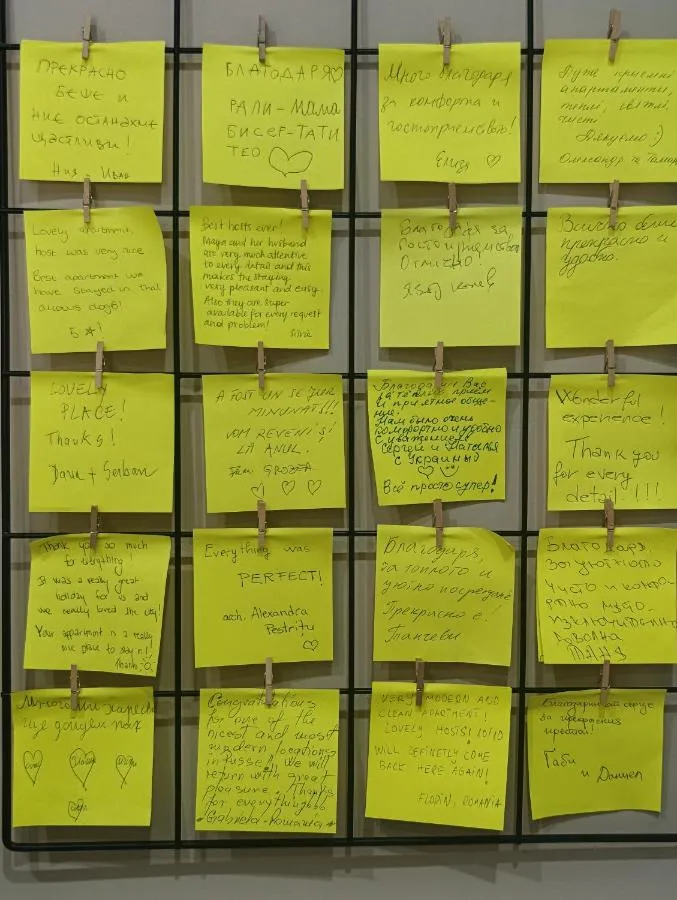 ПРЕКРАСНО
БЕШЕ И
НИЕ ОСТАНАХМЕ
ЩАСТЛИВИ!
БЛАГОДАРЯ♡
РАЛИ-МАМА
БИСЕР-ТАТИ
ТЕО
Много благодаря
за комфорта и
гостоприемството!
Елица ♡
Дуже приємні
апартаменти,
теплі, світлі,
чисті
Дякуємо :)
Олександр та
Lovely apartment,
host was very nice
Best apartment we
have stayed in that
5 ☆!
Best hosts ever!
Maya and her husband
are very much attentive
to every detail and this
makes the staying
very pleasant and easy.
Also they are super
available for every request
and problem!
Silvia
Благодаря за
Отлично.
Всичко беше
прекрасно и
удобно.
LOVELY
PLACE!
Thanks!
Dana + Serban
A FOST UN SEJUR
MINUNAT!!!
VOM REVENI ȘI
LA ANUL.
FAM. GROZEA
♡ ♡ ♡
Благодарим Вас
за тёплый приём
и приятное обще-
ние.
Нам было очень
комфортно и удобно
С уважением
Сергей и Наталья
с Украины
Всё просто супер!
Wonderful
experience!
Thank you
for every
detail!!!!
Thank you so much
for everything!
It was a really great
holiday for us and
we really loved the city!
Your apartment is a really
nice place to stay in!
Thanks
Everything was
PERFECT!
arh. Alexandra
Pestrițu
♡
Благодаря,
за топлото и
уютно посрещане
Прекрасно е!
Танчеви
Благодаря
за уютното
чисто и
място.
изключително
доволна
ТАНЯ
Много ни хареса
ще дойдем пак
Congratulations
for one of the
nicest and most
modern locations
in Russe! We will
return with great
pleasure. Thanks
for everything
Gabriela-Romania
VERY MODERN AND
CLEAN APARTMENT!
LOVELY HOSTS! 10/10
WILL DEFINETLY COME
BACK HERE AGAIN!
FLORIN, ROMANIA
за прекрасния
престой!
Габи
и Даниел